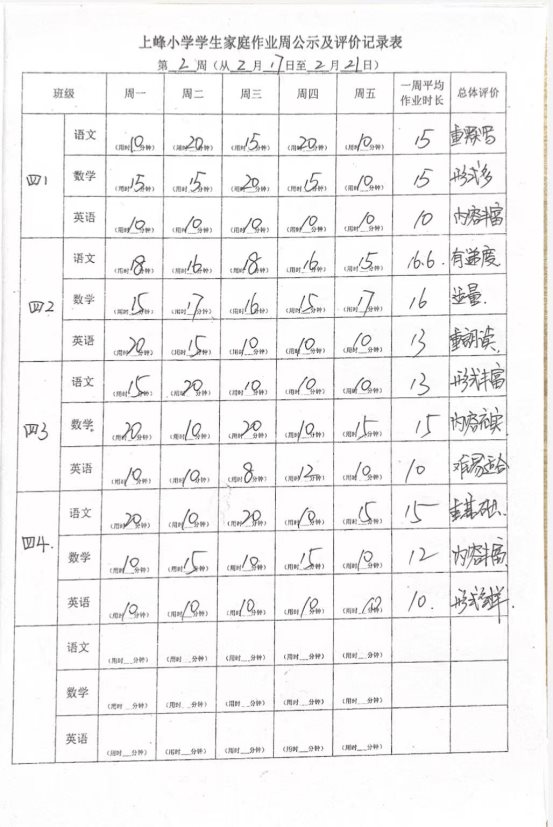 上峰小学学生家庭作业周公示及评价记录表
第2周（从2月17日至2月21日）
班级 周一 周二 周三 周四 周五 一周平均作业时长 总体评价
四1 语文 （用时10分钟） （用时20分钟） （用时15分钟） （用时20分钟） （用时10分钟） 15 重默写
数学 （用时15分钟） （用时15分钟） （用时20分钟） （用时15分钟） （用时10分钟） 15 形式多
英语 （用时10分钟） （用时10分钟） （用时10分钟） （用时10分钟） （用时10分钟） 10 内容丰富
四2 语文 （用时18分钟） （用时16分钟） （用时18分钟） （用时16分钟） （用时15分钟） 16.6. 有速度
数学 （用时15分钟） （用时17分钟） （用时16分钟） （用时15分钟） （用时17分钟） 16 适量.
英语 （用时20分钟） （用时15分钟） （用时10分钟） （用时10分钟） （用时10分钟） 13 重朗读.
四3 语文 （用时15分钟） （用时20分钟） （用时10分钟） （用时10分钟） （用时10分钟） 13 形式丰富
数学 （用时20分钟） （用时10分钟） （用时20分钟） （用时10分钟） （用时15分钟） 15 内容充实.
英语 （用时10分钟） （用时10分钟） （用时8分钟） （用时12分钟） （用时10分钟） 10 难易适合
四4. 语文 （用时20分钟） （用时10分钟） （用时20分钟） （用时10分钟） （用时15分钟） 15 重基础.
数学 （用时10分钟） （用时15分钟） （用时10分钟） （用时15分钟） （用时10分钟） 12 内容丰富.
英语 （用时10分钟） （用时10分钟） （用时10分钟） （用时10分钟） （用时10分钟） 10. 形式多样.
语文 （用时__分钟） （用时__分钟） （用时__分钟） （用时__分钟） （用时__分钟）
数学 （用时__分钟） （用时__分钟） （用时__分钟） （用时__分钟） （用时__分钟）
英语 （用时__分钟） （用时__分钟） （用时__分钟） （用时__分钟） （用时__分钟）